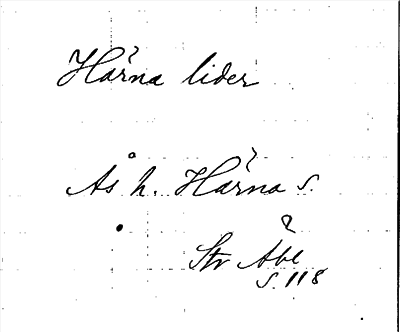 Härna lider
Ås h. Härna s.
Str Åbl
s. 118